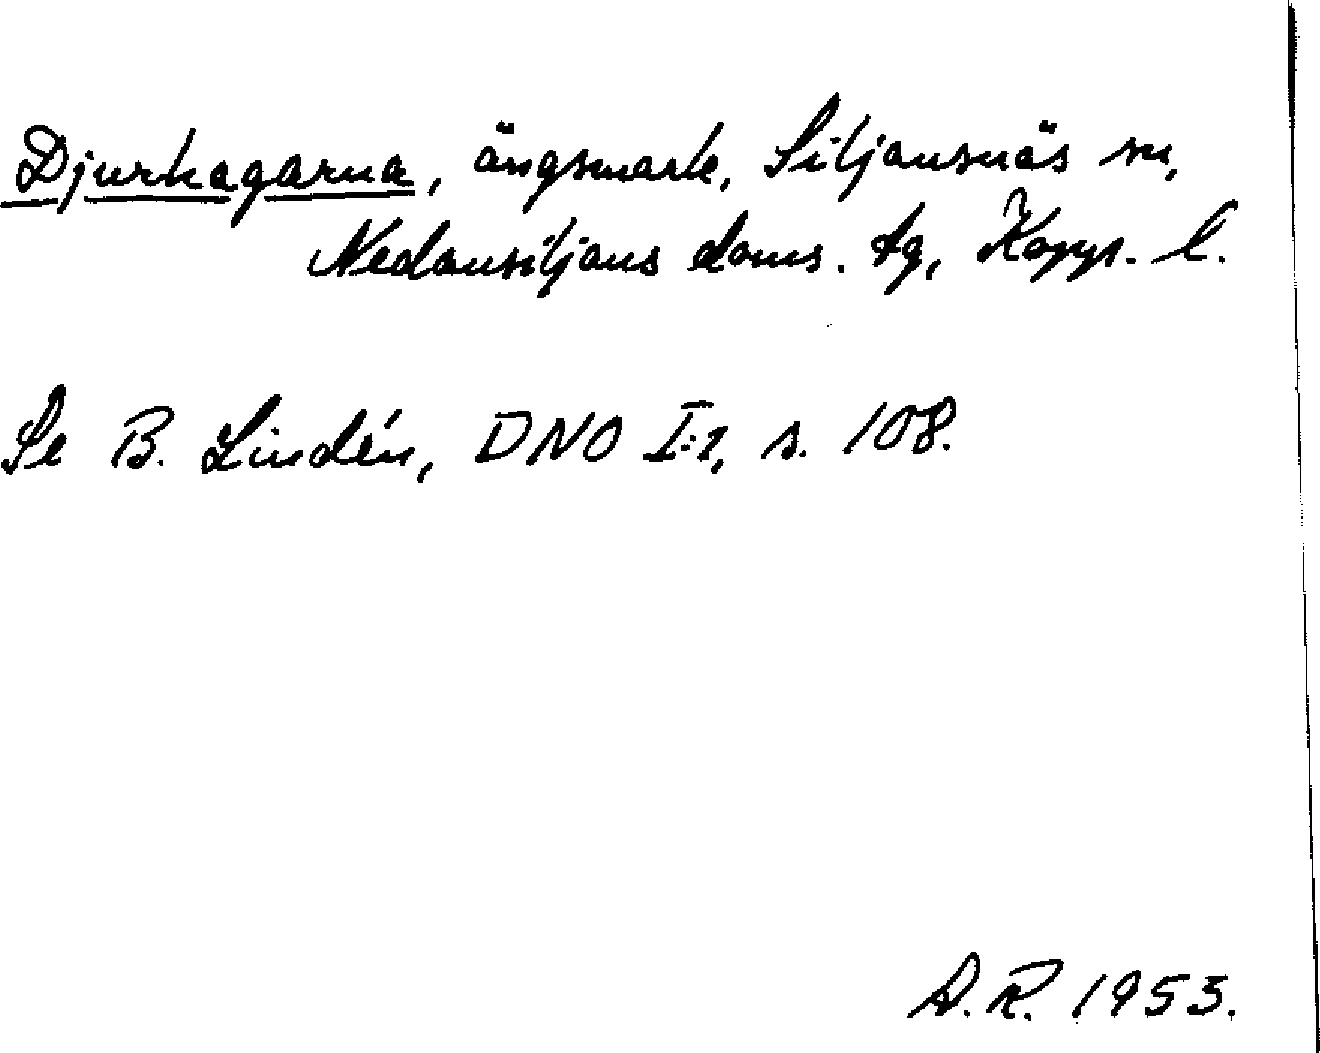 Djurhagarna, ängsmark, Siljansnäs sn,
Nedansiljans doms. tg, Kopp. l.
Se B. Lindén, DNO I:1, s. 108.
D.R. 1953.